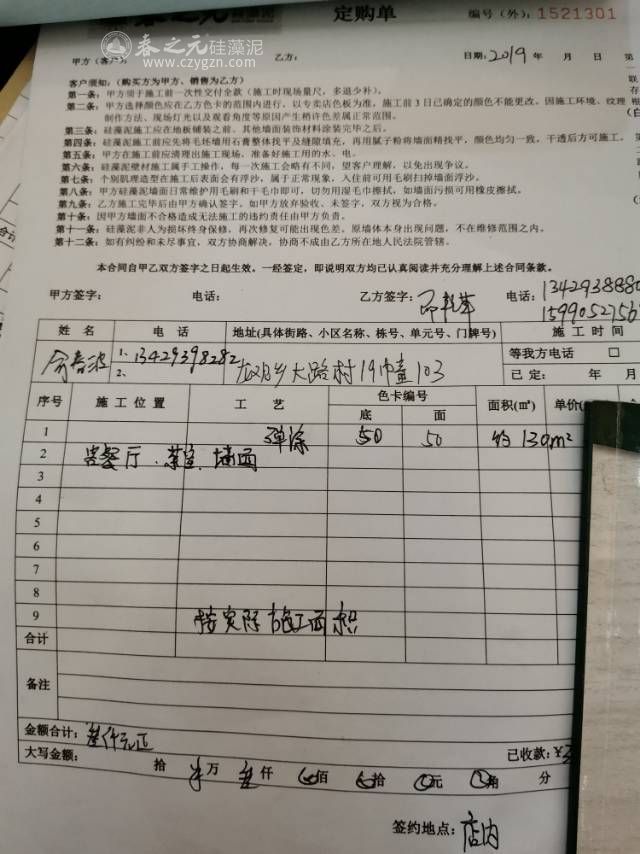 春之元硅藻泥 定购单 编号(外):1521301
春之元硅藻泥
www.czygzn.com
甲方(客户): 乙方: 日期:2019年 月 日 第
客户须知:(购买方为甲方、销售为乙方)
第一条:甲方须于施工前一次性交付全款(施工时现场量尺,多退少补)。
第二条:甲方选择颜色应在乙方色卡的范围内进行,以专卖店色板为准,施工前3日已确定的颜色不能更改。因施工环境、纹理
制作方法、现场灯光以及观看角度等原因产生稍许色差属正常范围。
第三条:硅藻泥施工应在地板铺装之前、其他墙面装饰材料涂装完毕之后。
第四条:硅藻泥施工前应先将毛坯墙用石膏整体找平及缝隙填充,再用腻子粉将墙面精找平,颜色均匀一致,干透后方可施工。
第五条:甲方在施工前应清理出施工现场、准备好施工用的水、电。
第六条:硅藻泥壁材施工属手工操作,每一次施工会略有不同,望客户理解,以免出现争议。
第七条:个别肌理造型在施工后表面会有浮沙,属于正常现象,入住前可用毛刷扫掉墙面浮沙。
第八条:甲方硅藻泥墙面日常维护用毛刷和干毛巾即可,切勿用湿毛巾擦拭,如墙面污损可用橡皮擦拭。
第九条:乙方施工完毕后由甲方确认签字。如甲方放弃验收、未签字,双方视为合格。
第十条:因甲方墙面不合格造成无法施工的违约责任由甲方负责。
第十一条:硅藻泥非人为损坏终身保修、再次修复可能出现色差。原墙体本身出现问题,不在维修范围之内。
第十二条:如有纠纷和未尽事宜,双方协商解决,协商不成由乙方所在地人民法院管辖。
本合同自甲乙双方签字之日起生效。一经签定,即说明双方均已认真阅读并充分理解上述合同条款。
甲方签字: 电话: 乙方签字: 电话:
姓名 电话 地址(具体街路、小区名称、栋号、单元号、门牌号) 施工时间
1、13429398282 大路村19幢103 等我方电话 □
2、 已定: 年 月
序号 施工位置 工艺 色卡编号 面积(㎡) 单价(
底 面
1 弹涂 50 50 约130m²
2 客餐厅.茶室.墙面
3
4
5
6
7
8
9 按实际施工面积
合计
备注
金额合计:叁仟元正
大写金额: 拾 万 叁仟 佰 拾 元 角 分 已收款:¥
签约地点:店内